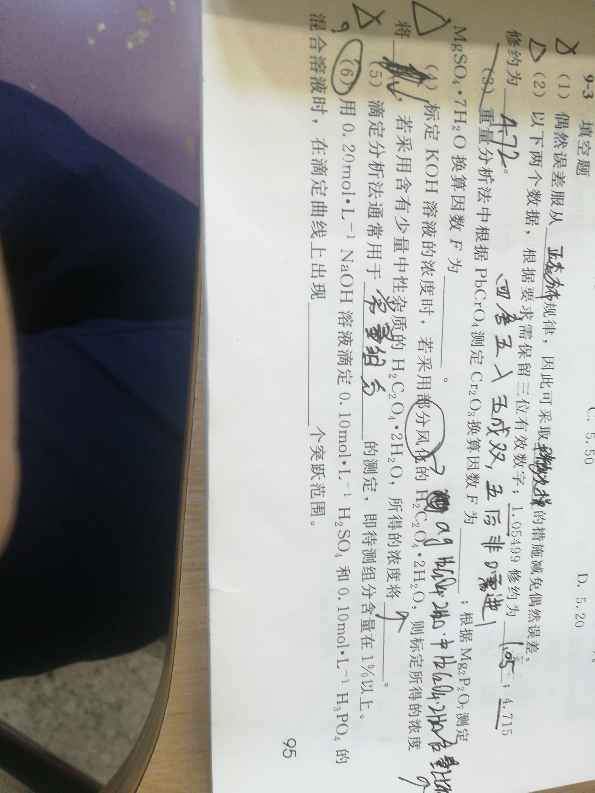 C. 5.50 D. 5.20
9-3 填空题
(1) 偶然误差服从 正态分布 规律，因此可采取 的措施减免偶然误差。
(2) 以下两个数据，根据要求需保留三位有效数字：1.05499 修约为 1.05；4.715
修约为 4.72。
四舍五入五成双，五后非0需进1
(3) 重量分析法中根据 PbCrO₄ 测定 Cr₂O₃ 换算因数 F 为 ；根据 Mg₂P₂O₇ 测定
MgSO₄·7H₂O 换算因数 F 为 。
(4) 标定 KOH 溶液的浓度时，若采用部分风化的 H₂C₂O₄·2H₂O，则标定所得的浓度
将 。若采用含有少量中性杂质的 H₂C₂O₄·2H₂O，所得的浓度将 。
(5) 滴定分析法通常用于 常量组分 的测定，即待测组分含量在 1%以上。
(6) 用 0.20mol·L⁻¹ NaOH 溶液滴定 0.10mol·L⁻¹ H₂SO₄ 和 0.10mol·L⁻¹ H₃PO₄ 的
混合溶液时，在滴定曲线上出现 个突跃范围。
95